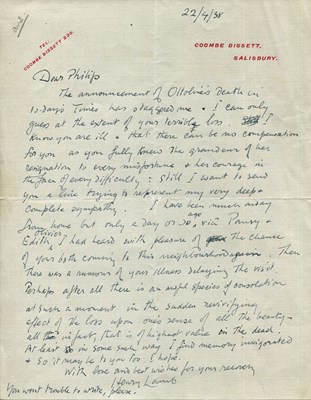 TEL:
COOMBE BISSETT
22/4/38
COOMBE BISSETT,
SALISBURY.
Dear Philip
The announcement of Ottoline's Death in
to.day's Times has staggered me. I can only
guess at the extent of your terrible loss I
know you are ill & that there can be no compensation
for you as you fully knew the grandeur of her
resignation to every misfortune & her courage in
the face of every difficulty: Still I want to send
you a line trying to represent my very deep &
complete sympathy. I have been much away
from home but only a day or so ago, via Pansy &
Edith Olivier, I had heard with pleasure of the chance
of your both coming to this neighbourhood again. Then
there was a rumour of your illness delaying the visit.
Perhaps after all there is an awful species of consolation
at such a moment in the sudden revivifying
effect of the loss upon one's sense of all the beauty -
all in fact, that is of highest value in the dead.
At least in some such way I find memory invigorated
& so it may be to you too I hope.
With love and best wishes for your recovery
Henry Lamb
You wont trouble to write, please.